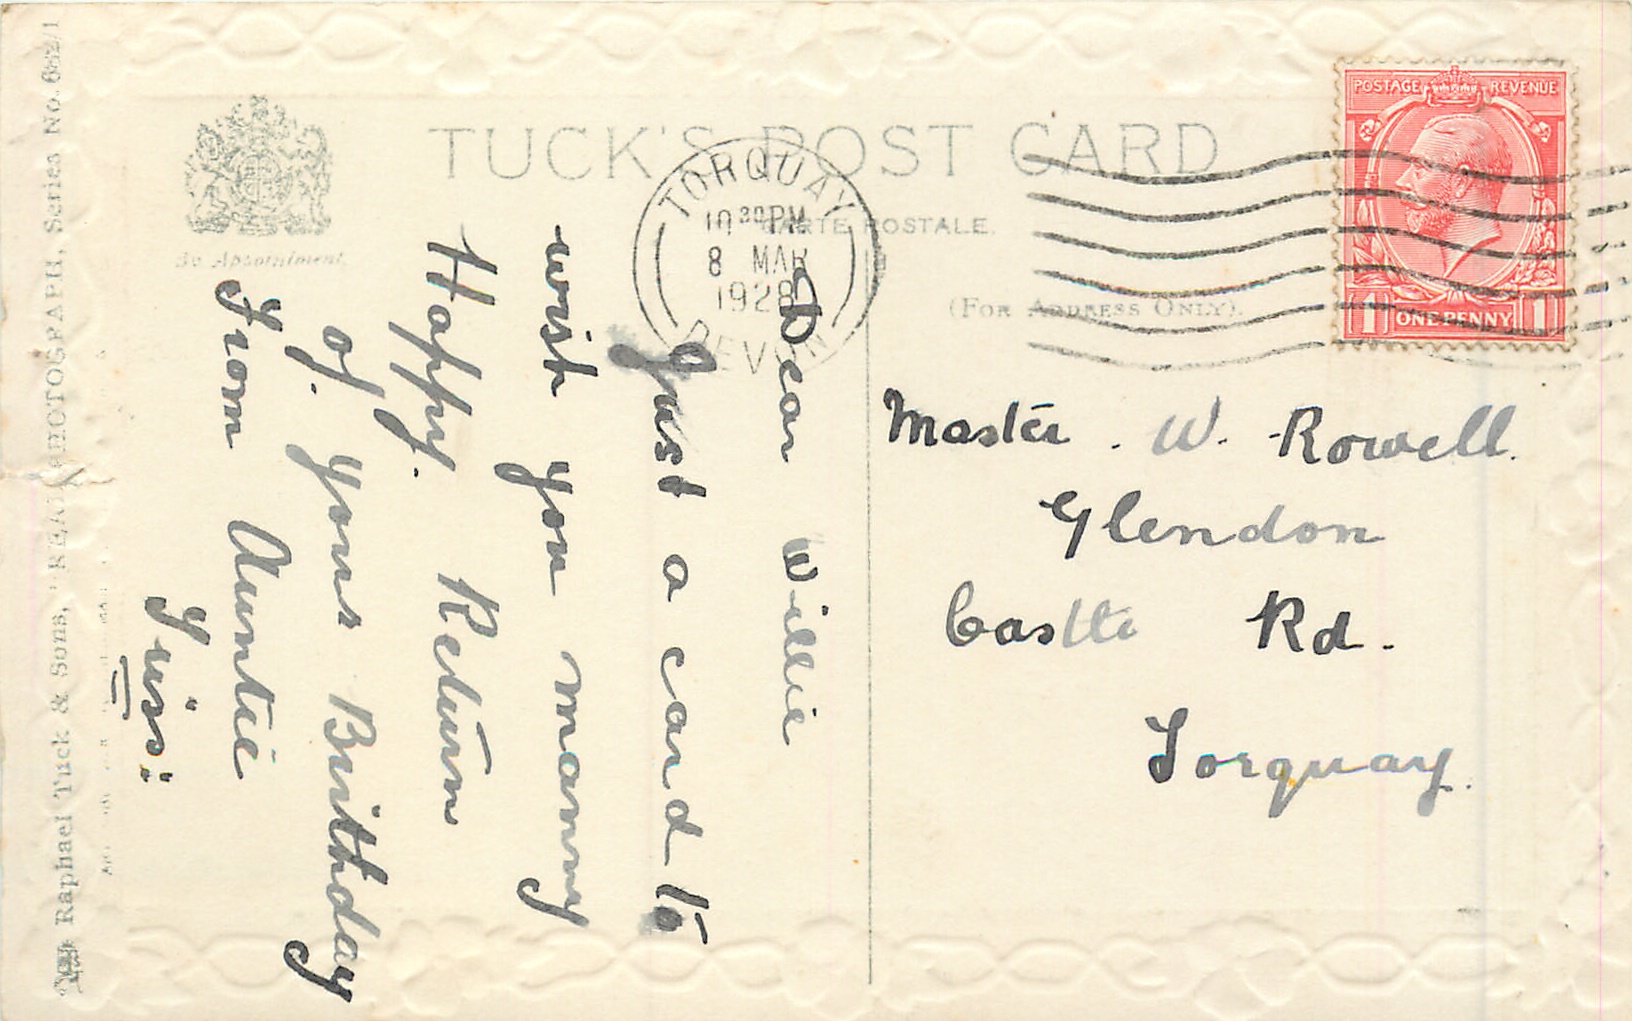 TUCK'S POST CARD
CARTE POSTALE.
(FOR ADDRESS ONLY).
By Appointment.
TORQUAY
10 30 PM
8 MAR
1928
DEVON
POSTAGE REVENUE
1 ONE PENNY 1
Dear Willie
Just a card to
wish you manny
Happy. Return
of. your Birthday
From Auntie
Master . W. Rowell.
Glendon
Castle Rd.
Torquay.
Raphael Tuck & Sons, "REAL PHOTOGRAPH, Series No. 632/1